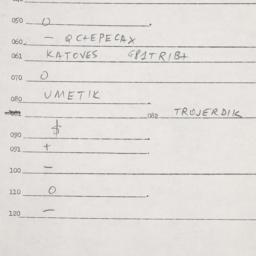 050 O
060 - QC+EPECAX
061 KATOVES GP1TRIB+
070 O
080 UMETIK
081 082 TROJERDIK
090 $
091 +
100 -
110 O
120 -